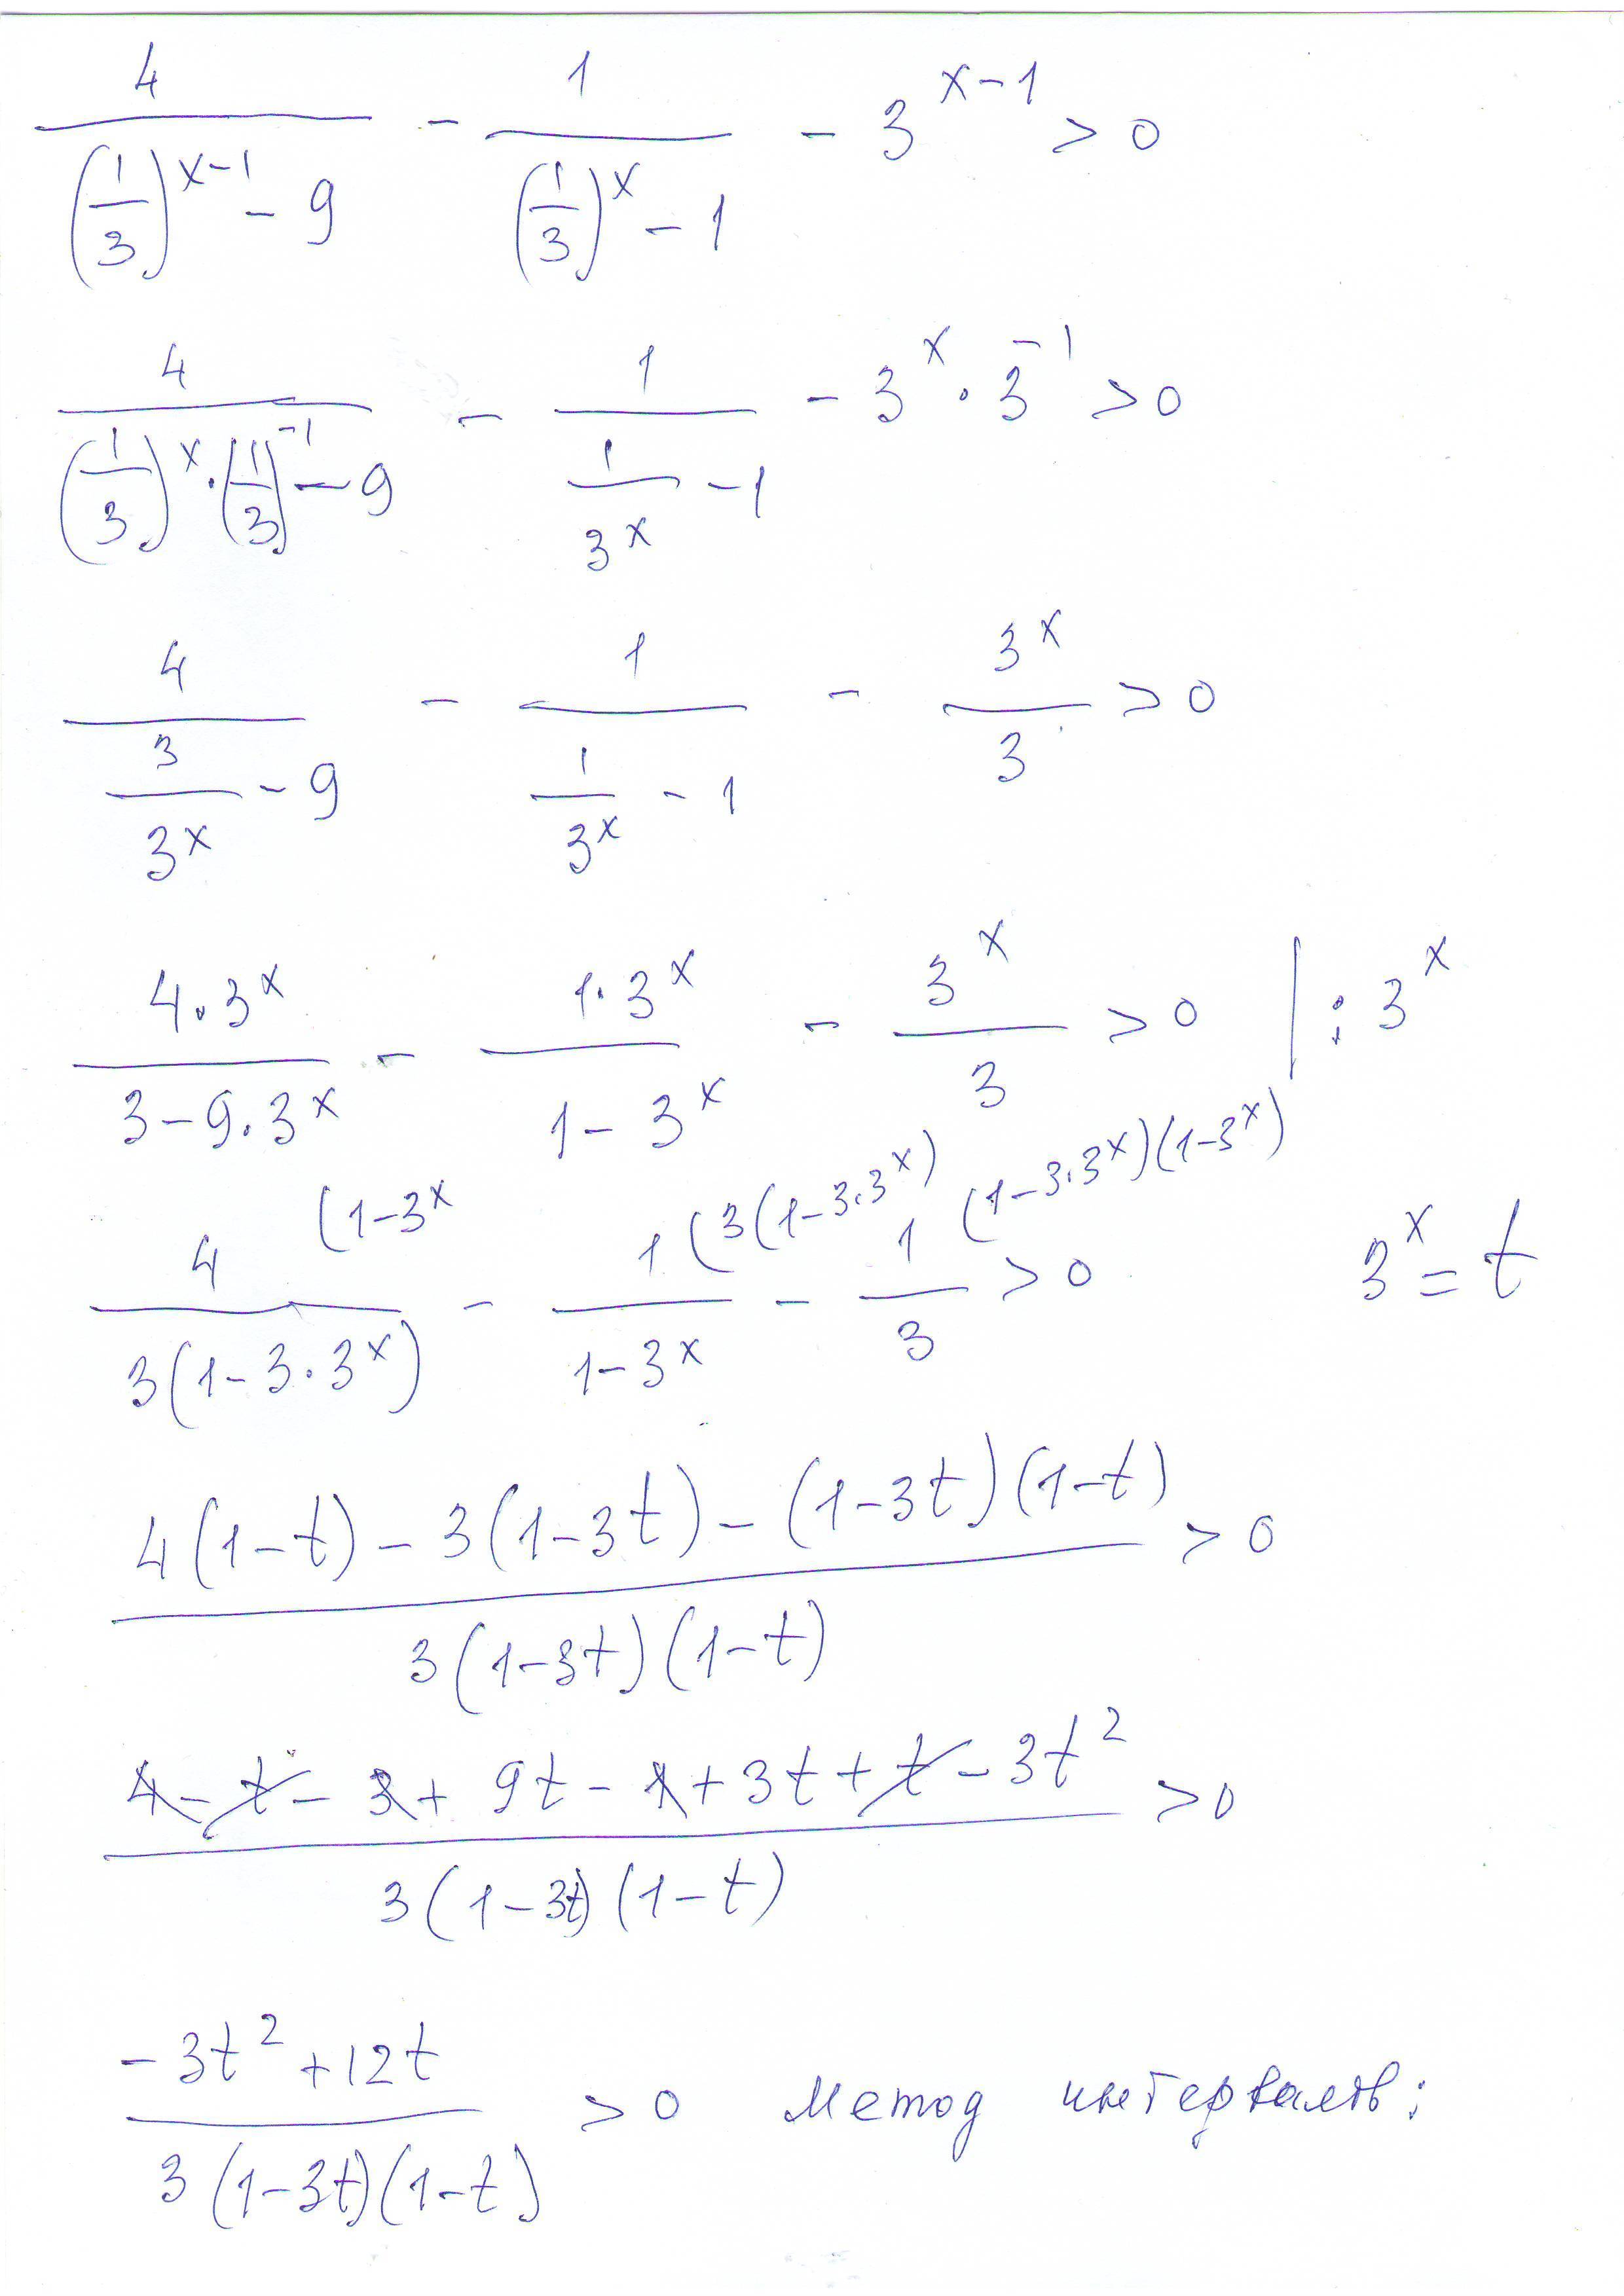 4/((1/3)^(x-1) - 9) - 1/((1/3)^x - 1) - 3^(x-1) > 0
4/((1/3)^x · (1/3)^(-1) - 9) - 1/(1/3^x - 1) - 3^x · 3^(-1) > 0
4/(3/3^x - 9) - 1/(1/3^x - 1) - 3^x/3 > 0
4·3^x/(3 - 9·3^x) - 1·3^x/(1 - 3^x) - 3^x/3 > 0 | : 3^x
4 (1-3^x / 3(1-3·3^x) - 1 (3(1-3·3^x) / (1-3^x) - 1 (1-3·3^x)(1-3^x) / 3 > 0 3^x = t
(4(1-t) - 3(1-3t) - (1-3t)(1-t)) / (3(1-3t)(1-t)) > 0
(4 - t - 3 + 9t - 1 + 3t + t - 3t²) / (3(1-3t)(1-t)) > 0
(-3t² + 12t) / (3(1-3t)(1-t)) > 0 Метод интервалов: